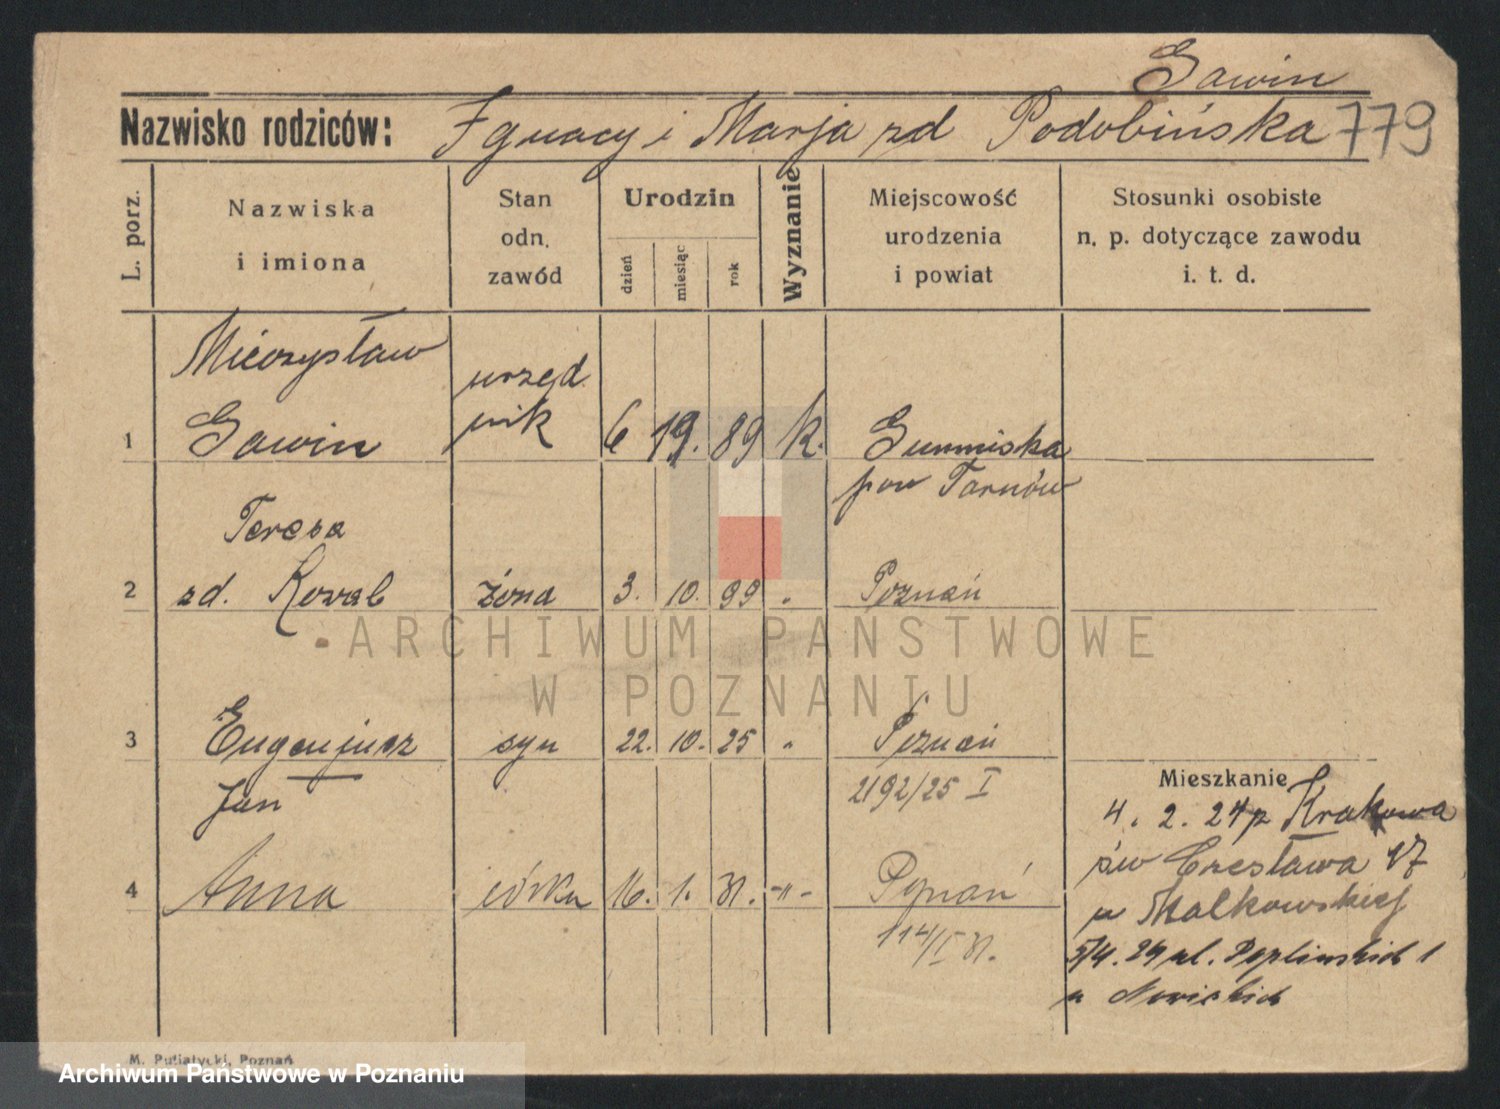 Gawin
Nazwisko rodziców: Ignacy i Marja zd Podobińska 779
L. porz.
Nazwiska
i imiona
Stan
odn.
zawód
Urodzin
dzień
miesiąc
rok
Wyznanie
Miejscowość
urodzenia
i powiat
Stosunki osobiste
n. p. dotyczące zawodu
i. t. d.
Mieczysław
urzęd
nik
1 Gawin 6 19. 89 k. Gumniska
pow Tarnów
Teresa
2 zd. Kowal żona 3. 10. 99 " Poznań
ARCHIWUM PAŃSTWOWE
W POZNANIU
3 Eugenjusz syn 22. 10. 25 " Poznań
Jan
2192/25 I
Mieszkanie
4. 2. 24 z Krakowa
św Czesława 17
u Małkowskiej
4 Anna córka 16. 1. 31. -"- Poznań
114/I 31.
5/4. 24 ul. Peplińskich 1
u Nowickich
M. Putiatycki, Poznań
Archiwum Państwowe w Poznaniu